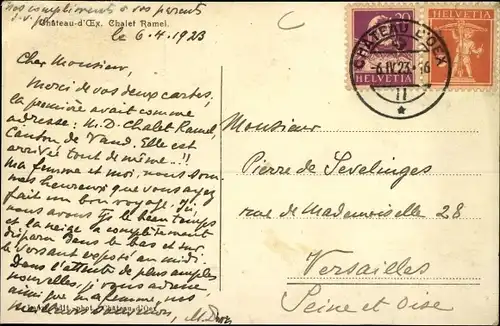 nos compliments à vos parents
s.v.p.
Château-d'Œx, Chalet Ramel.
le 6.4.1923
Cher Monsieur,
Merci de vos deux cartes,
la première avait comme
adresse: M.D. Chalet Ramel,
Canton de Vaud. Elle est
arrivée tout de même..!!
ma femme et moi, nous som-
mes heureux que vous ayez
fait un bon voyage. Ici
nous avons le beau temps
et la neige a complètement
disparu dans le bas et sur
le versant exposé au midi.
Dans l'attente de plus amples
nouvelles, je vous adresse,
ainsi que ma femme, nos
meilleurs
20
HELVETIA
HELVETIA
CHÂTEAU D'OEX
6.IV.23
II
Monsieur
Pierre de Sevelinges
rue de Mademoiselle 28
Versailles
Seine et Oise